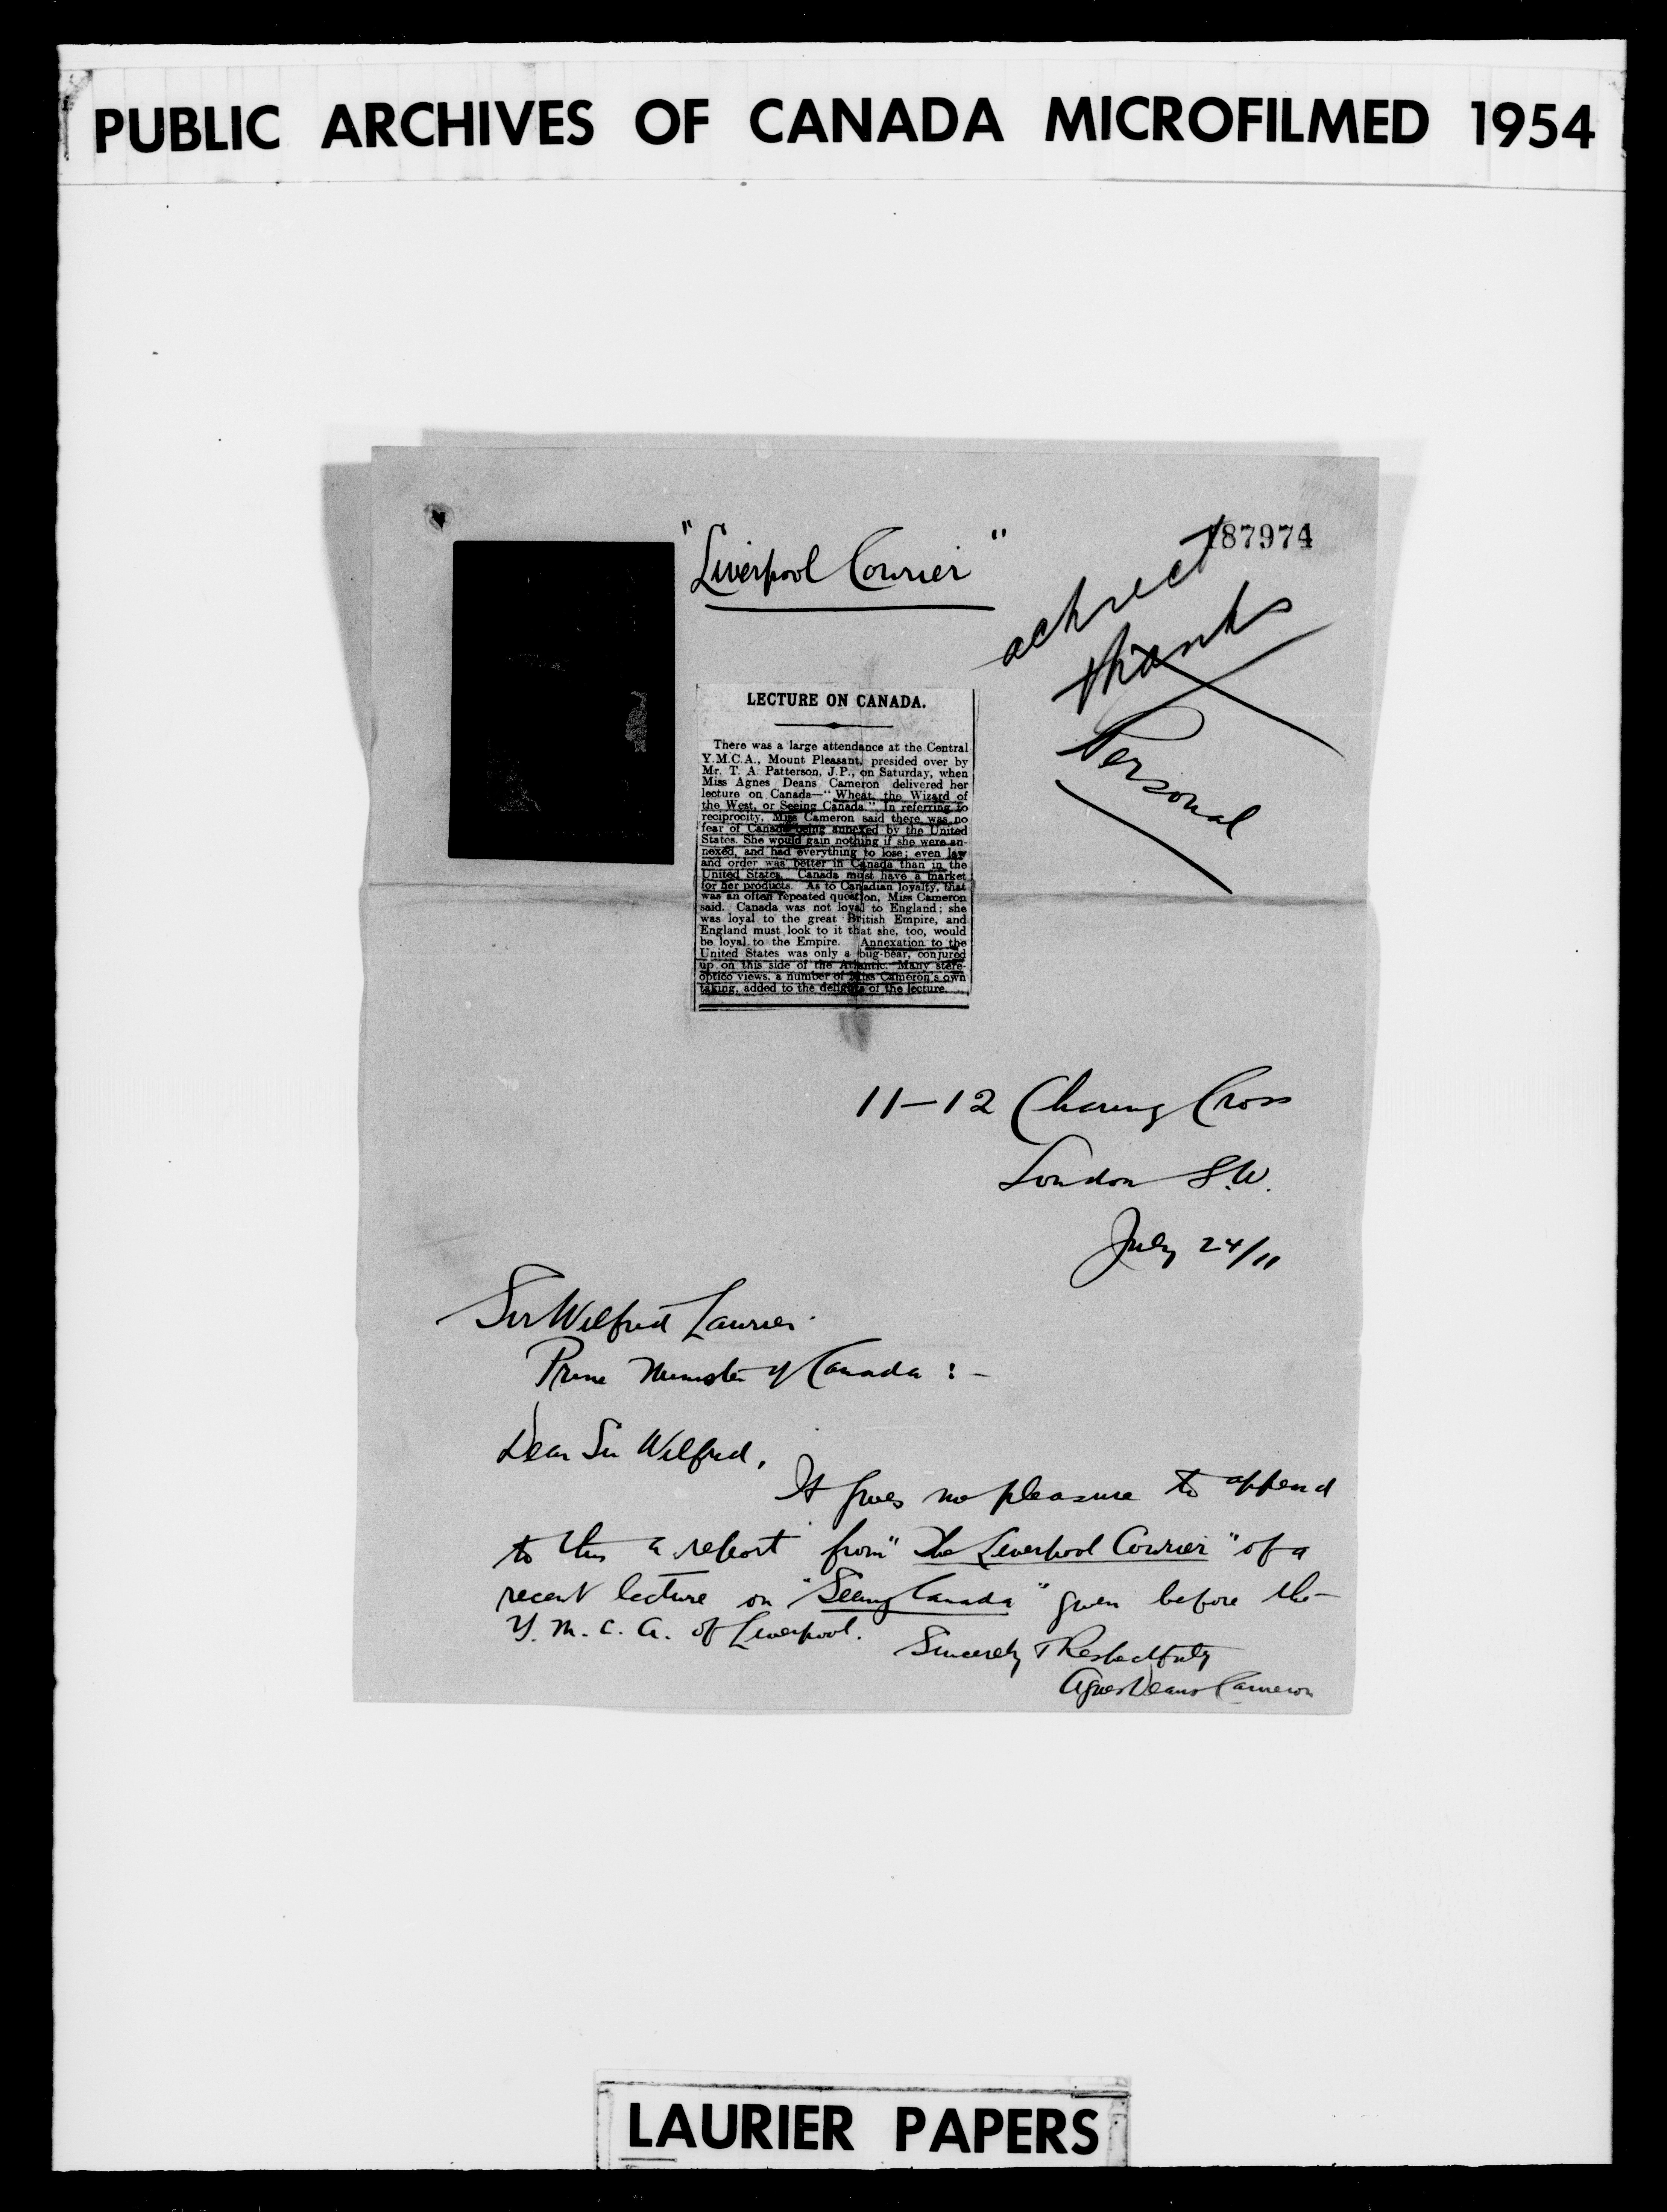 PUBLIC ARCHIVES OF CANADA MICROFILMED 1954
187974
"Liverpool Courier"
thanks
Personal
LECTURE ON CANADA.
There was a large attendance at the Central
Y.M.C.A., Mount Pleasant, presided over by
Mr. T. A. Patterson, J.P., on Saturday, when
Miss Agnes Deans Cameron delivered her
lecture on Canada—"Wheat, the Wizard of
the West, or Seeing Canada." In referring to
reciprocity, Miss Cameron said there was no
fear of Canada being annexed by the United
States. She would gain nothing if she were an-
nexed, and had everything to lose; even law
and order was better in Canada than in the
United States. Canada must have a market
for her products. As to Canadian loyalty, that
was an often repeated question, Miss Cameron
said. Canada was not loyal to England; she
was loyal to the great British Empire, and
England must look to it that she, too, would
be loyal to the Empire. Annexation to the
United States was only a bug-bear, conjured
up on this side of the Atlantic. Many stere-
optico views, a number of Miss Cameron's own
taking, added to the delights of the lecture.
11-12 Charing Cross
London S.W.
July 24/11
Sir Wilfred Laurier
Prime Minister of Canada :-
Dear Sir Wilfred,
It gives me pleasure to append
to this a report from "The Liverpool Courier" of a
recent lecture on "Seeing Canada" given before the
Y. M. C. A. of Liverpool.
Sincerely & Respectfully
Agnes Deans Cameron
LAURIER PAPERS